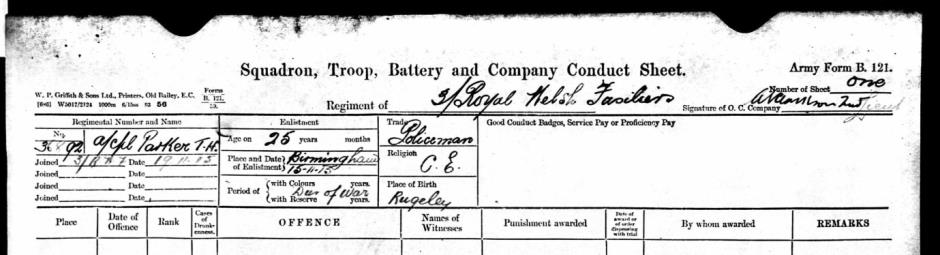 Squadron, Troop, Battery and Company Conduct Sheet.
Army Form B. 121.
W. P. Griffith & Sons Ltd., Printers, Old Bailey, E.C.
Forms
B. 121.
Number of Sheet one
Regiment of 3/Royal Welsh Fusiliers
Signature of O. C. Company
Regimental Number and Name
No. 92 a/cpl Parker T.H.
Joined Date 19.11.15
Joined Date
Joined Date
Joined Date
Enlistment
Age on 25 years months
Place and Date of Enlistment Birmingham
15-11-15
Period of
with Colours years.
with Reserve years.
Dur of War
Trade
Policeman
Religion
C. E.
Place of Birth
Rugeley
Good Conduct Badges, Service Pay or Proficiency Pay
Place
Date of Offence
Rank
Cases of Drunkenness.
OFFENCE
Names of Witnesses
Punishment awarded
Date of award or of order dispensing with trial
By whom awarded
REMARKS